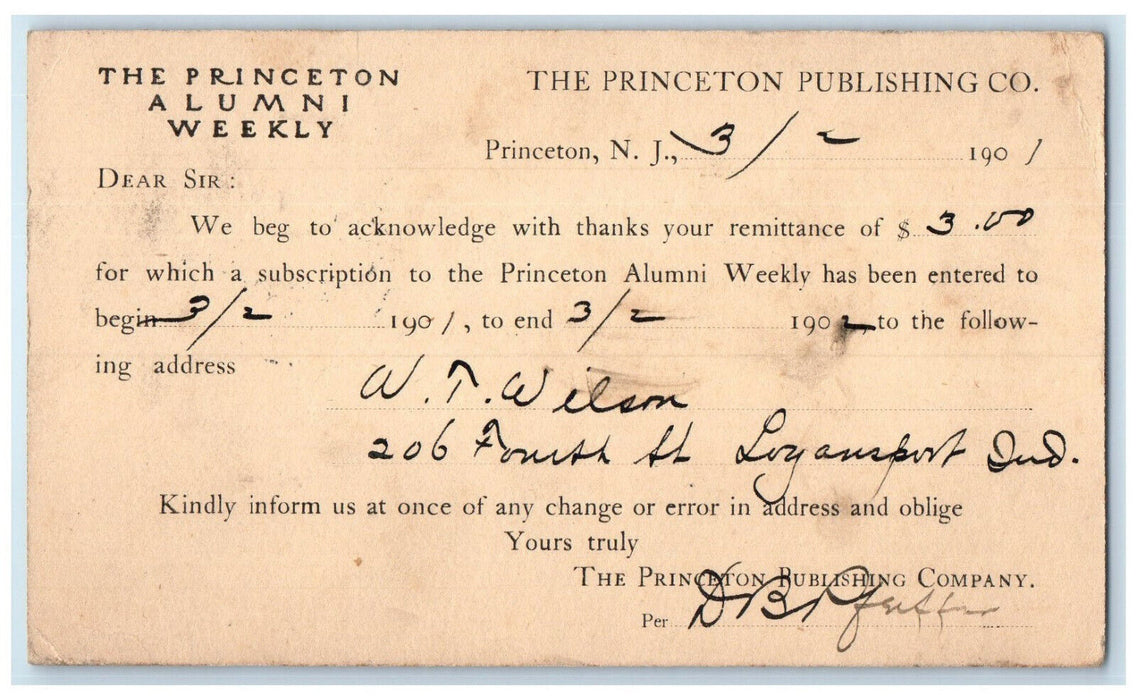 THE PRINCETON
ALUMNI
WEEKLY
THE PRINCETON PUBLISHING CO.
Princeton, N. J., 3/2 1901
DEAR SIR:
We beg to acknowledge with thanks your remittance of $ 3.00
for which a subscription to the Princeton Alumni Weekly has been entered to
begin 3/2 1901, to end 3/2 1902, to the follow-
ing address
W. T. Wilson
206 Fourth St Logansport Ind.
Kindly inform us at once of any change or error in address and oblige
Yours truly
THE PRINCETON PUBLISHING COMPANY.
Per D B Pfeiffer